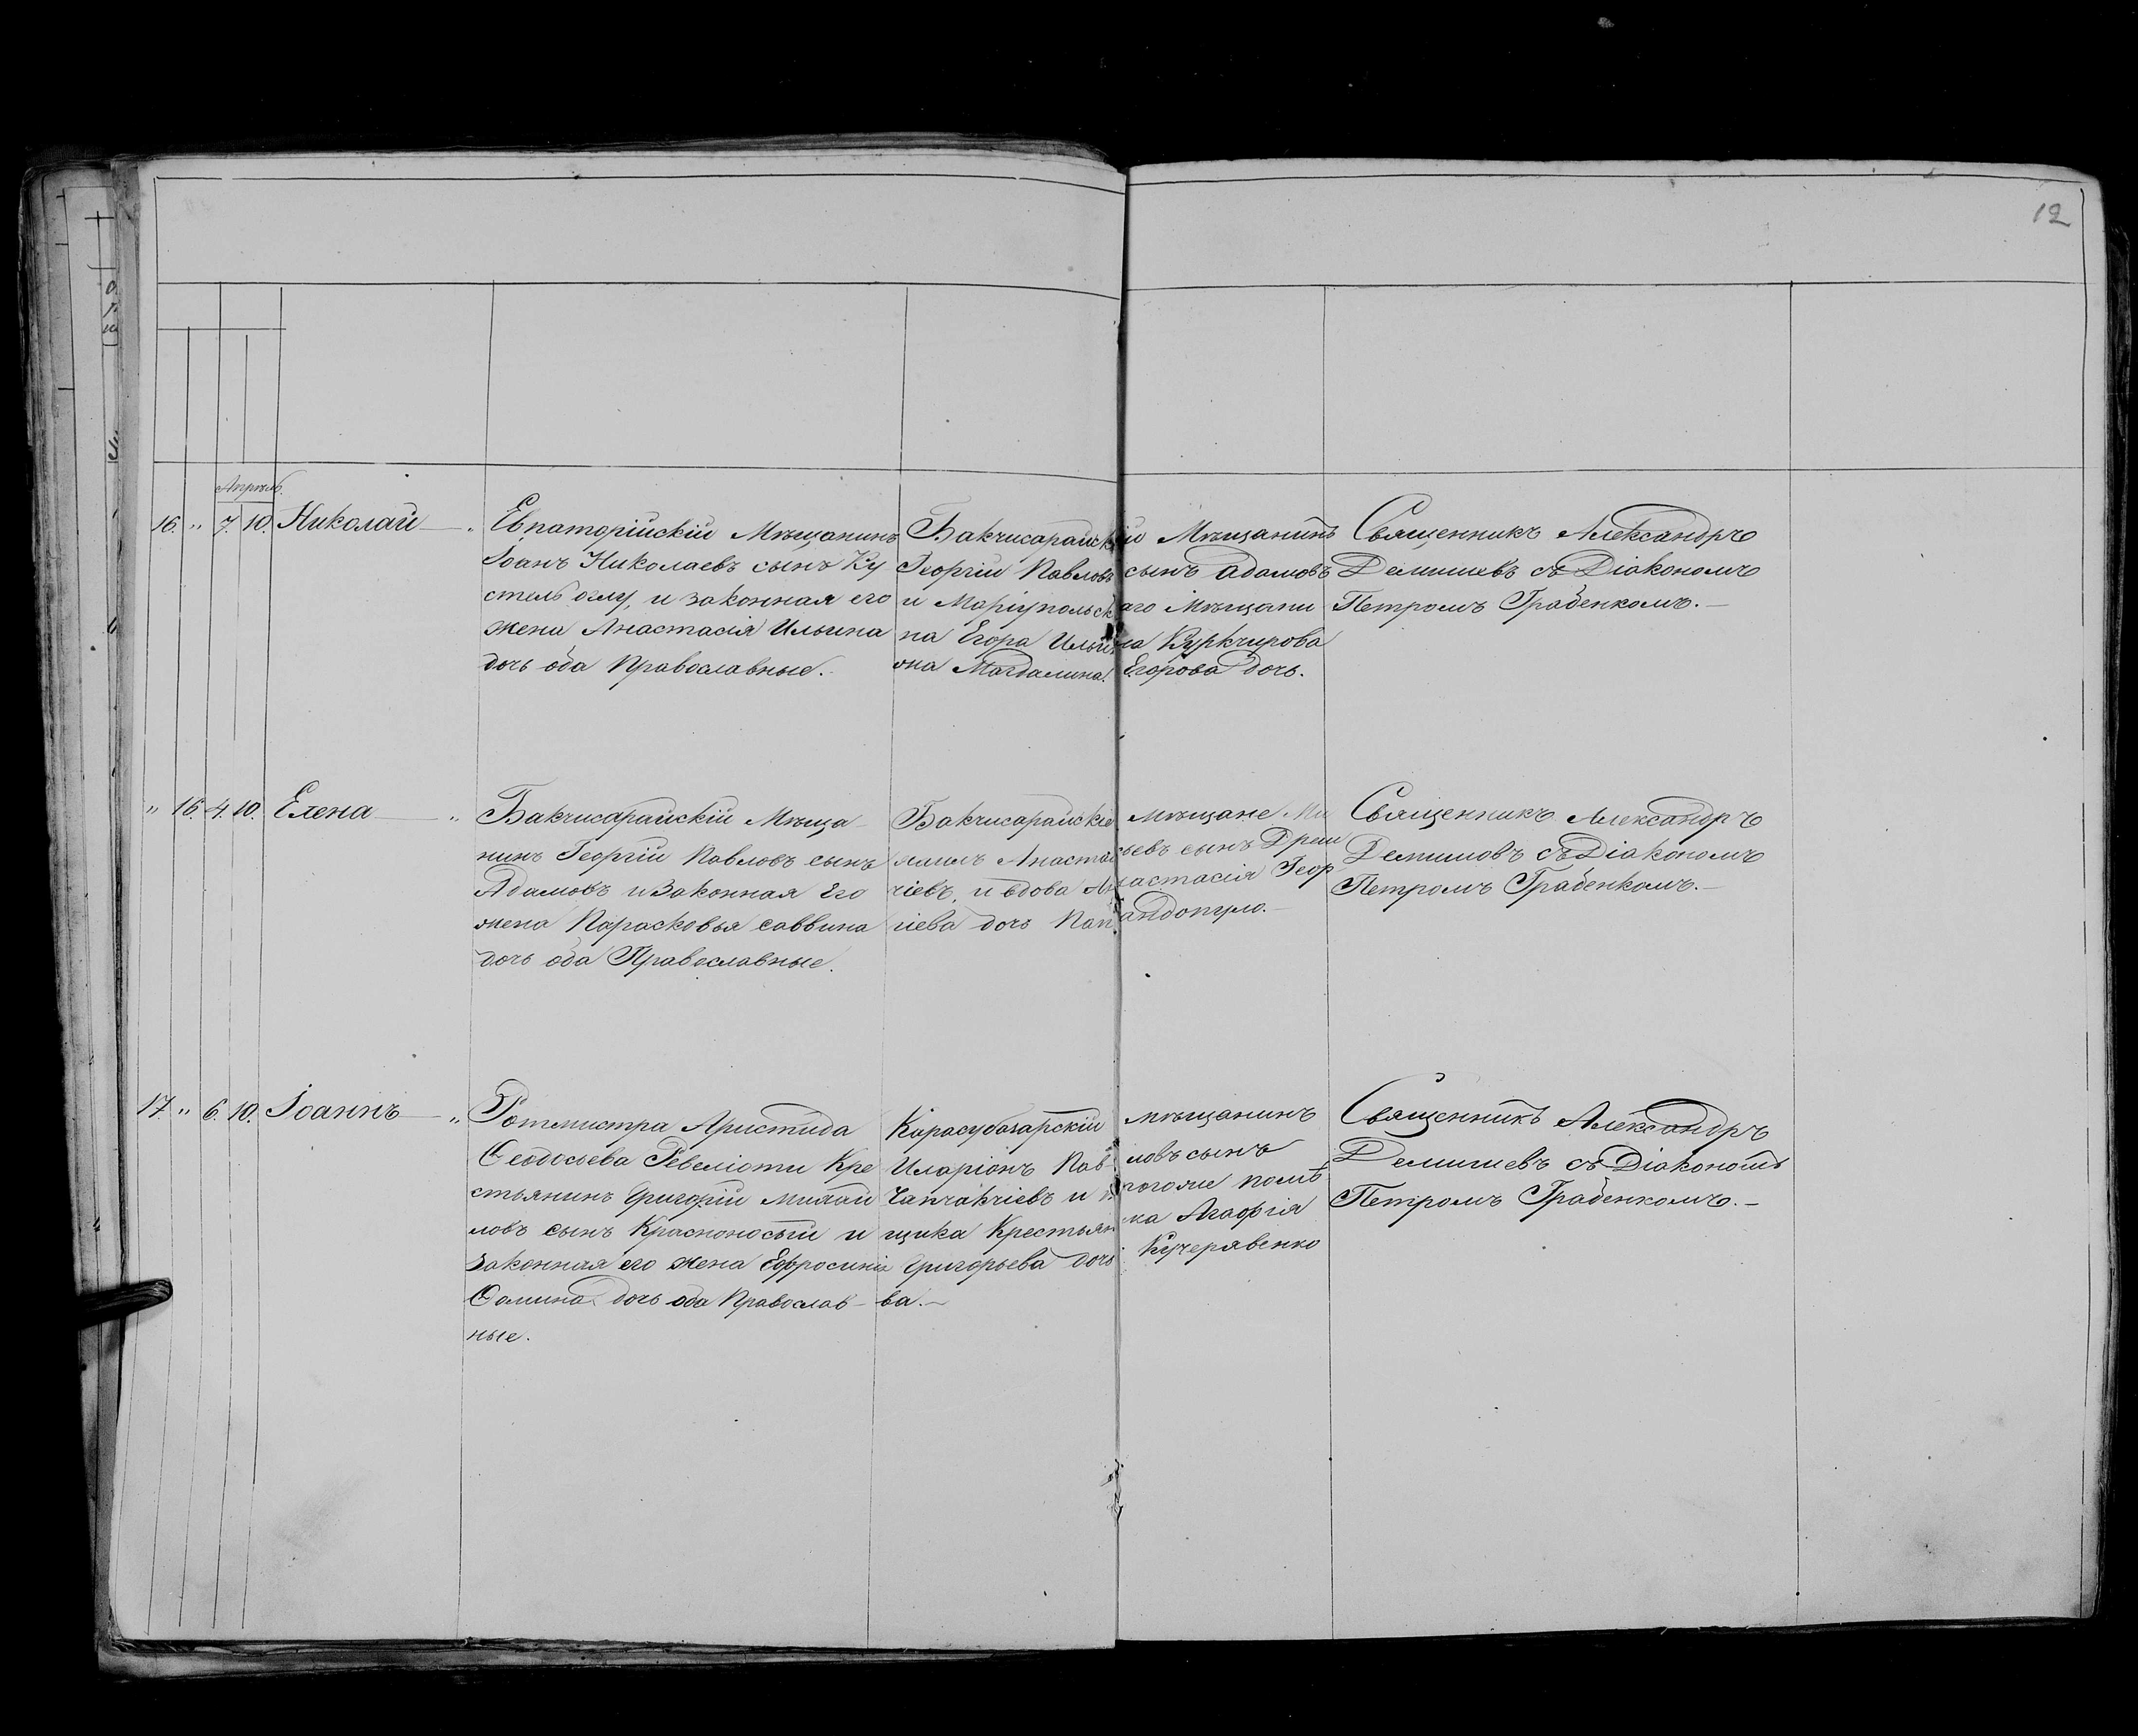 12
Апрѣль.
16. " 7. 10. Николай
Евпаторійскій Мѣщанинъ
Іоанъ Николаевъ сынъ Ку
стель оглу, и законная его
жена Анастасія Ильина
дочь оба Православные.
Бакчисарайскій Мѣщанинъ
Георгій Павловъ сынъ Адамовъ
и Маріупольскаго Мѣщани
на Егора Ильина Куркчирова
она Магдалина Егорова дочь.
Священникъ Александръ
Демишевъ съ Діакономъ
Петромъ Грабенкомъ.—
" 16. 4. 10. Елена
Бакчисарайскій Мѣща
нинъ Георгій Павловъ сынъ
Адамовъ и Законная Его
жена Парасковья Саввина
дочь оба Православные.
Бакчисарайскіе мѣщане Ми
хаилъ Анастасьевъ сынъ
чіевъ, и вдова Анастасія Геор
гіева дочь Папандопуло.—
Священникъ Александръ
Демишовъ съ Діакономъ
Петромъ Грабенкомъ.—
17. " 6. 10. Іоаннъ
Ротмистра Аристида
Ѳеодосьева Ревеліоти Кре
стьянинъ Григорій Михай
ловъ сынъ Красноносый и
законная его жена Ефросинія
Ѳомина дочь оба Православ-
ные.
Карасубазарскій мѣщанинъ
Иларіонъ Павловъ сынъ
Чапчакчіевъ и помѣ
щика Крестьянка Агафія
Григорьева дочь Кучерявенко
ва.—
Священникъ Александръ
Демишевъ съ Діакономъ
Петромъ Грабенкомъ.—